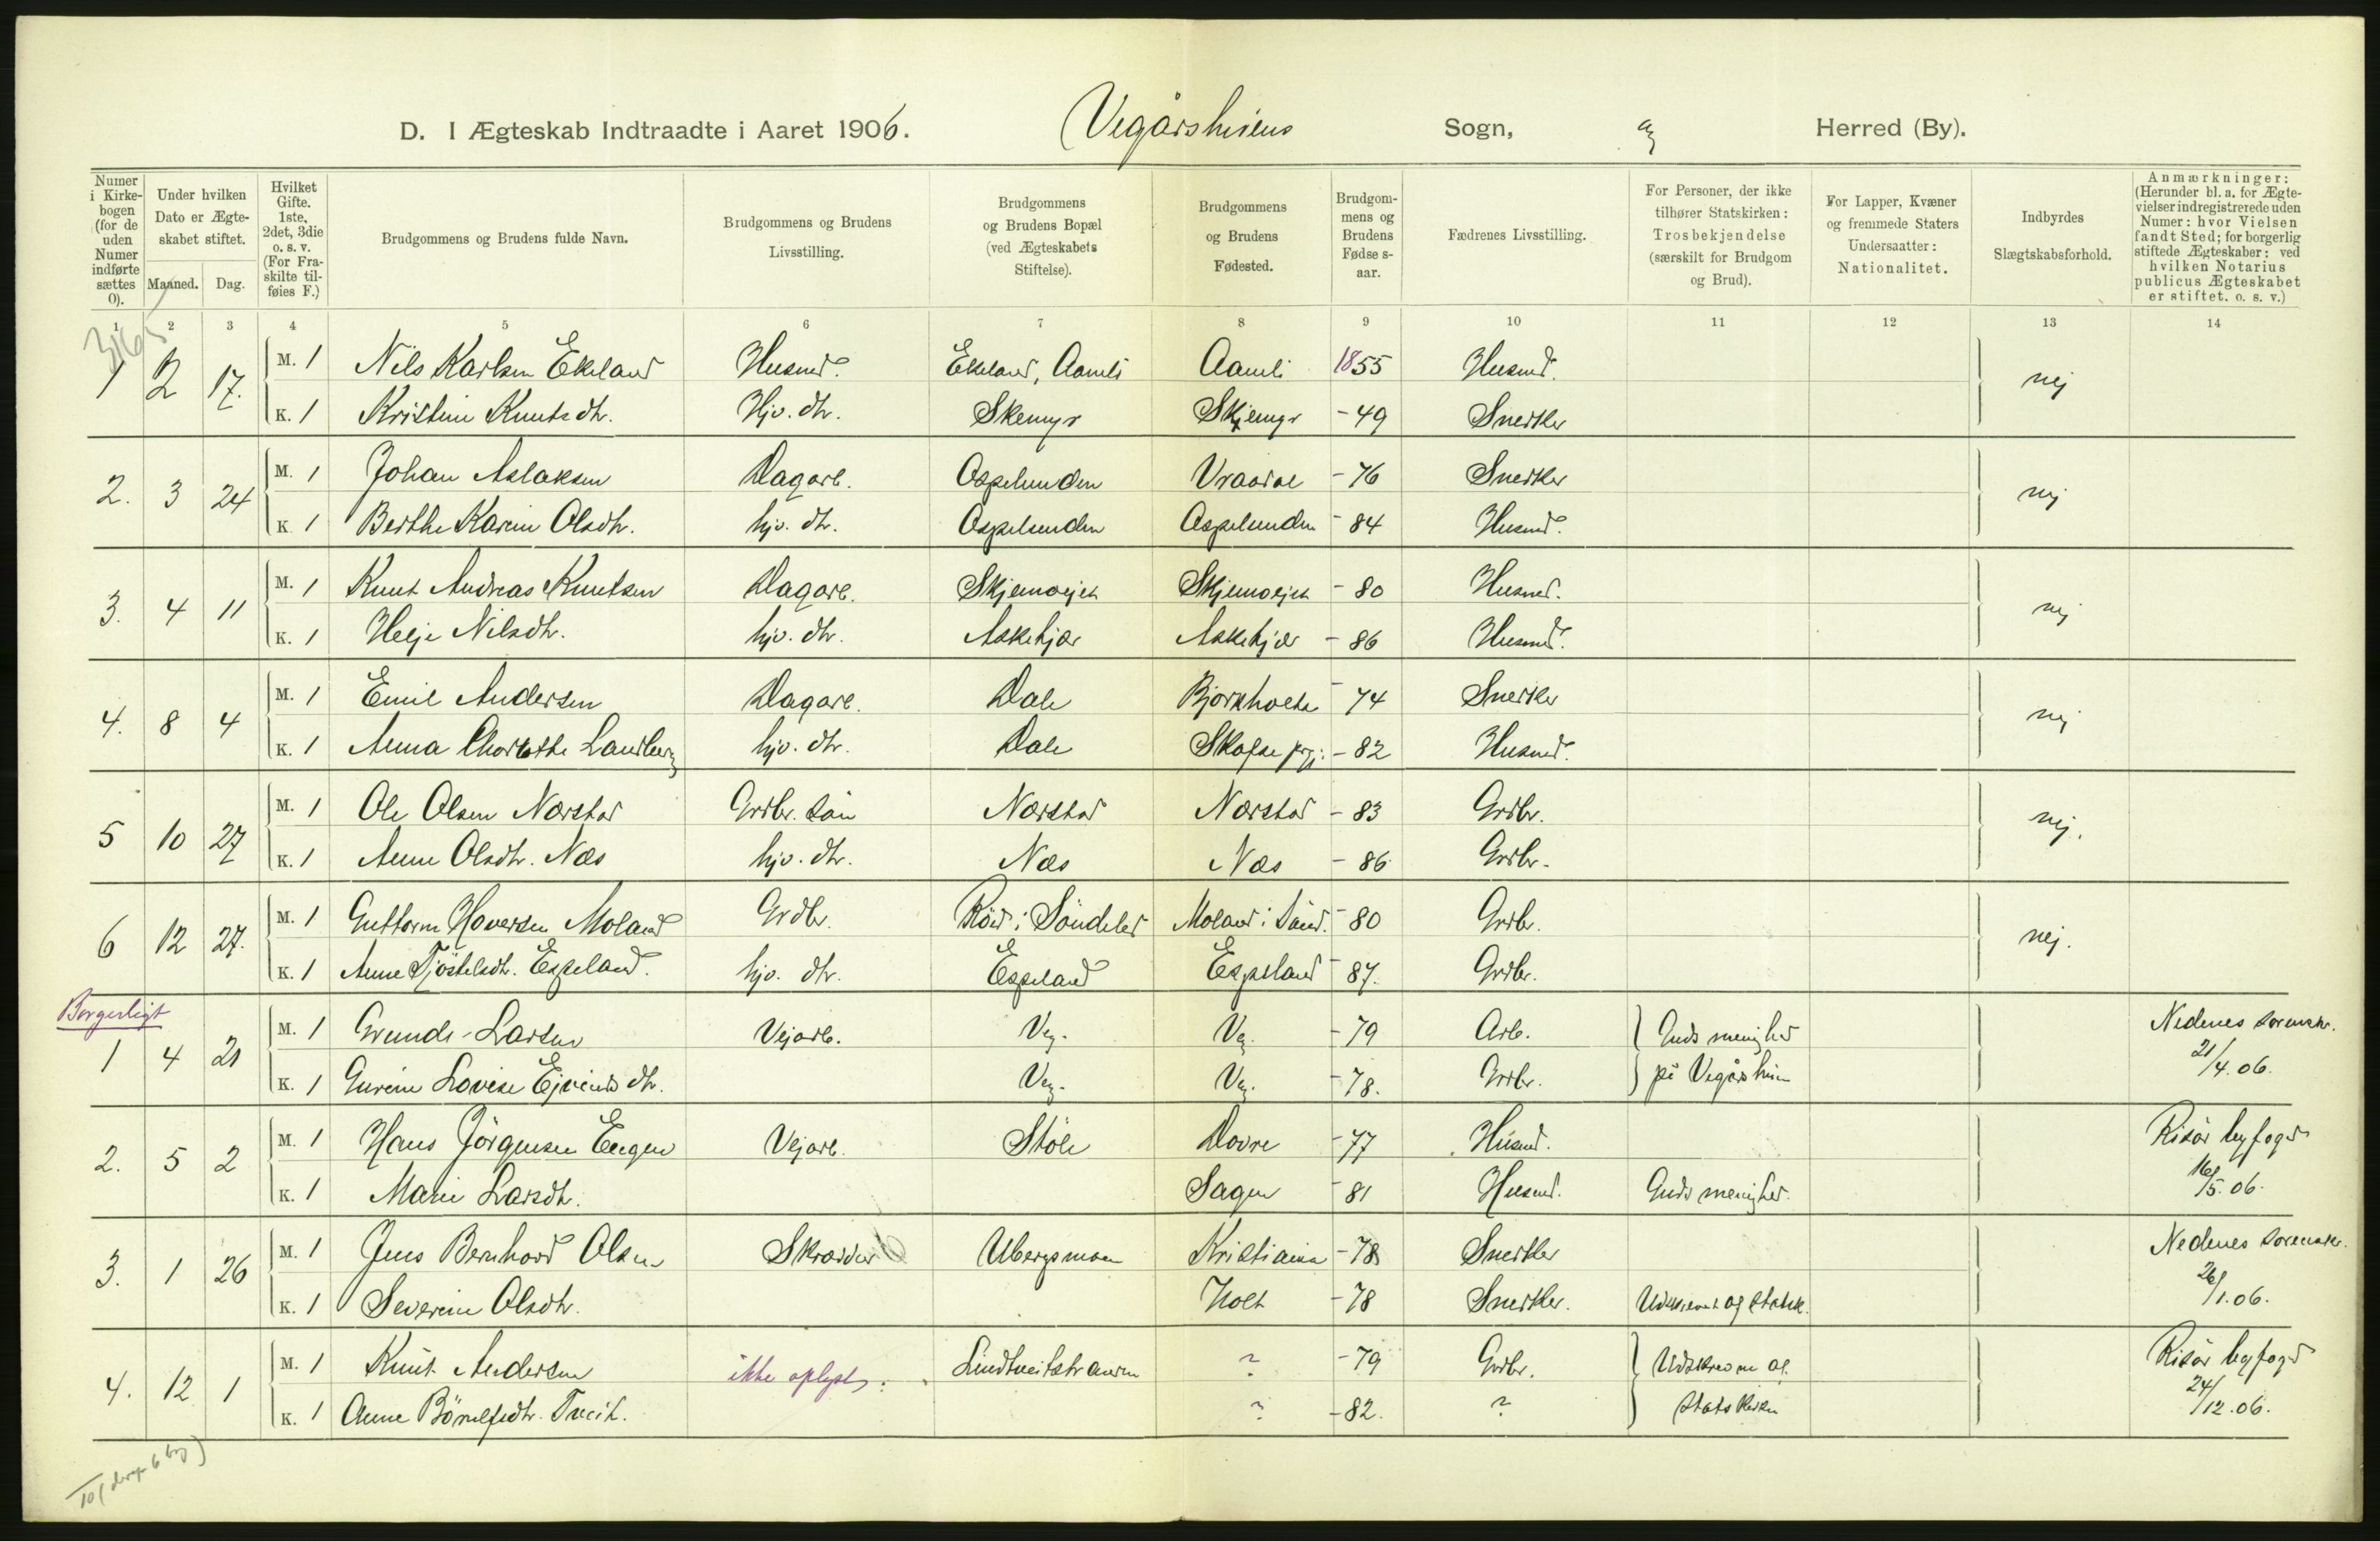 D. I Ægteskab Indtraadte i Aaret 1906. Vegårsheiens Sogn, og Herred (By).
Numer i Kirkebogen (for de uden Numer indførte sættes 0).
Under hvilken Dato er Ægteskabet stiftet. Maaned. Dag.
Hvilket Gifte. 1ste, 2det, 3die o. s. v. (For Fraskilte tilføies F.)
Brudgommens og Brudens fulde Navn.
Brudgommens og Brudens Livsstilling.
Brudgommens og Brudens Bopæl (ved Ægteskabets Stiftelse).
Brudgommens og Brudens Fødested.
Brudgommens og Brudens Fødselsaar.
Fædrenes Livsstilling.
For Personer, der ikke tilhører Statskirken: Trosbekjendelse (særskilt for Brudgom og Brud).
For Lapper, Kvæner og fremmede Staters Undersaatter: Nationalitet.
Indbyrdes Slægtskabsforhold.
Anmærkninger: (Herunder bl. a. for Ægtevielser indregistrerede uden Numer: hvor Vielsen fandt Sted; for borgerlig stiftede Ægteskaber: ved hvilken Notarius publicus Ægteskabet er stiftet. o. s. v.)
1 2 3 4 5 6 7 8 9 10 11 12 13 14
3165
1 2 17. M. 1 Nils Karlsen Ekeland Husmd. Ekeland, Aamli Aamli 1855 Husmd. nej
K. 1 Kristine Knutsdtr. Hjv. dtr. Skemyr Skjemyr -49 Snedker
2. 3 24 M. 1 Johan Aslaksen Dagarb. Ospelunden Vraadal -76 Snedker nej
K. 1 Berthe Karine Olsdtr. hjv. dtr. Ospelunden Ospelunden -84 Husmd.
3. 4 11 M. 1 Knut Andreas Knutsen Dagarb. Skjemoejet Skjemoejet -80 Husmd. nej
K. 1 Helje Nilsdtr. hjv. dtr. Askehjær Askehjær -86 Husmd.
4. 8 4 M. 1 Emil Andersen Dagarb. Dale Bjorkholta -74 Snedker nej
K. 1 Anna Charlotthe Landberg hjv. dtr. Dale Skafse prgj: -82 Husmd.
5 10 27 M. 1 Ole Olsen Nærstad Grdbr. sön Nærstad Nærstad -83 Grdbr. nej.
K. 1 Anne Olsdtr. Næs hjv. dtr. Næs Næs -86 Grdbr.
6 12 27. M. 1 Guttorm Haversen Moland Grdbr. Röed i Söndeled Moland i Sönd. -80 Grdbr. nej.
K. 1 Anne Tjöstelsdtr. Espeland. hjv. dtr. Espeland Espeland -87. Grdbr.
Borgerligt
1 4 21 M. 1 Grunde Larsen Vejarb. Veg. Veg. -79 Arb. Guds menighed Nedenes sorenskr.
K. 1 Gurine Lovise Ejvindsdtr. Veg. Veg. -78. Grdbr. på Vegårshein 21/4.06.
2. 5 2 M. 1 Hans Jörgensen Engen Vejarb. Stöle Dovre -77 Husmd. Risör byfoged
K. 1 Marie Larsdtr. Sagen -81 Husmd. Guds menighed. 16/5.06.
3. 1 26 M. 1 Jens Bernhard Olsen Skrædder Ubergsmoen Kristiania -78 Snedker Nedenes sorenskr.
K. 1 Severine Olsdtr. Holt -78 Snedker. Udskrevet af statsk. 26/1.06.
4. 12 1 M. 1 Knut Andersen ikke oplyst. Lindtveitstranden ? -79 Grdbr. Udskrevne af Risör byfoged
K. 1 Anne Börulfsdtr. Tveit. ? -82. ? Statskirken 24/12.06.